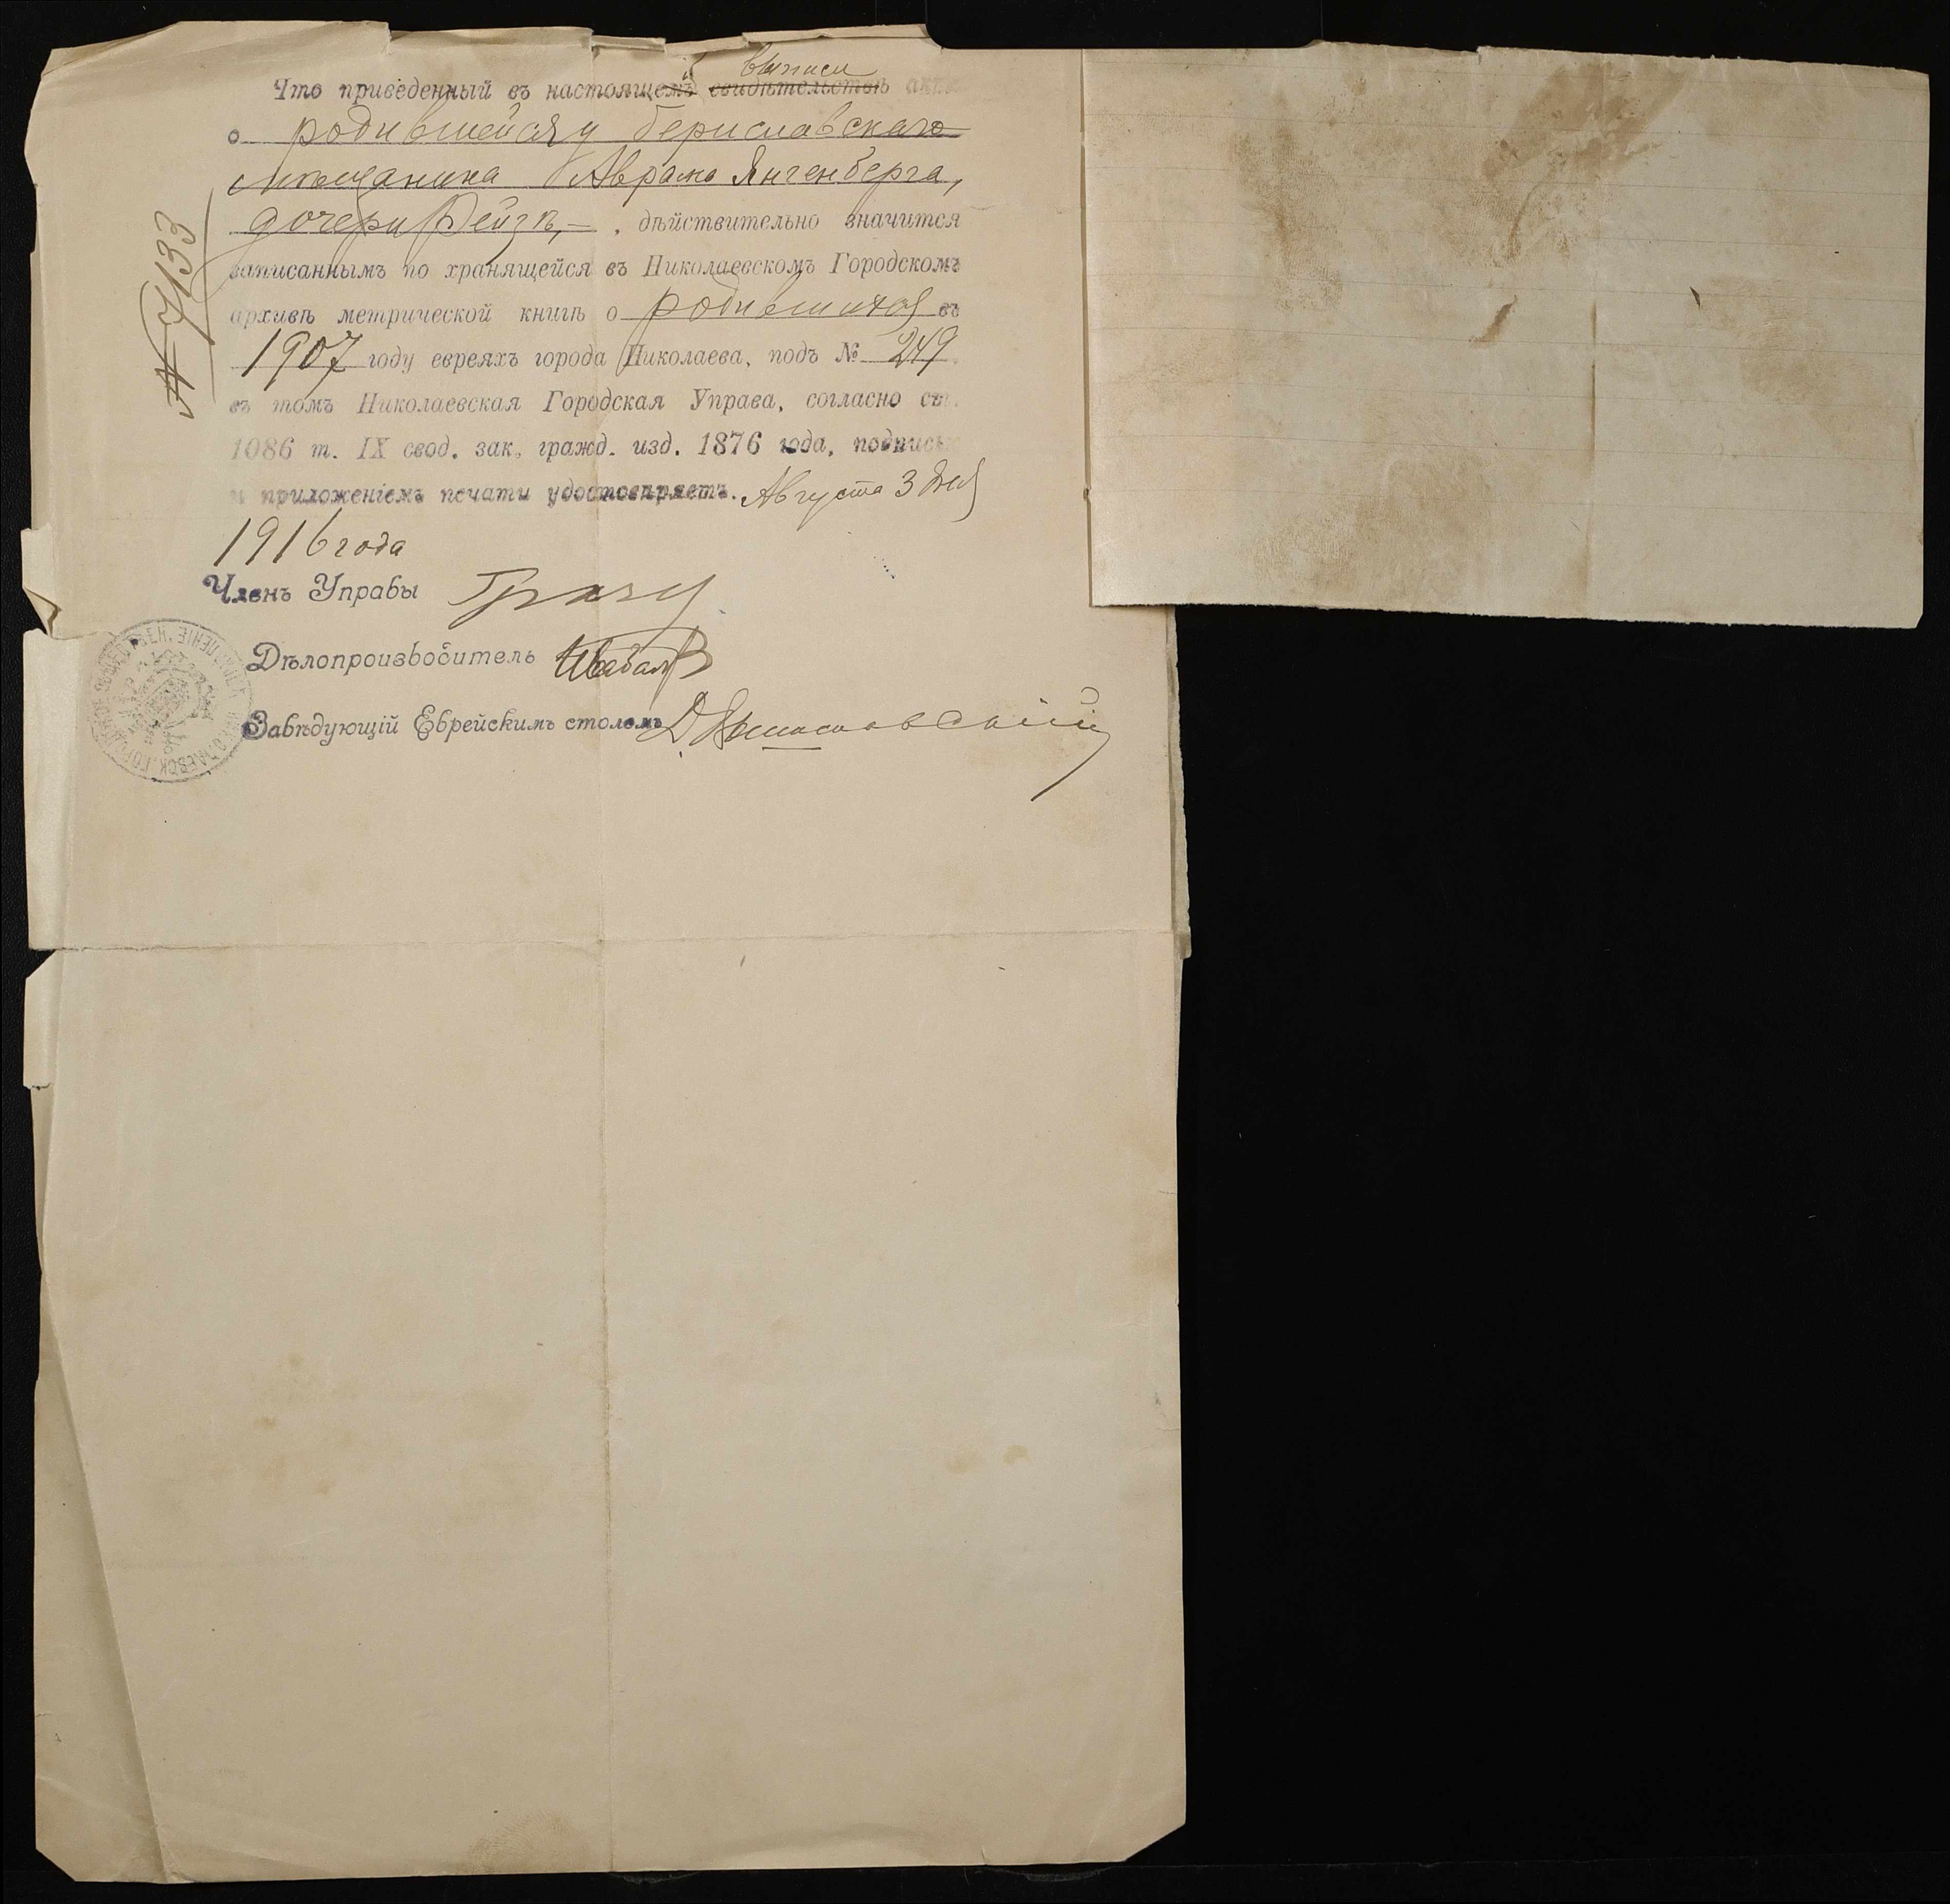 выписи
Что приведенный въ настоящей свидѣтельствѣ актъ
о родившейся у бериславскаго
мѣщанина Аврама Янгенберга,
дочери Рейзѣ, — , дѣйствительно значится
записаннымъ по хранящейся въ Николаевскомъ Городскомъ
архивѣ метрической книгѣ о родившихся въ
1907 году евреяхъ города Николаева, подъ № 249
въ томъ Николаевская Городская Управа, согласно ст.
1086 т. IX свод. зак. гражд. изд. 1876 года, подписью
и приложеніемъ печати удостовѣряетъ. Августа 3 дня
1916 года
№ 7133
Членъ Управы
Дѣлопроизводитель
Завѣдующій Еврейскимъ столомъ